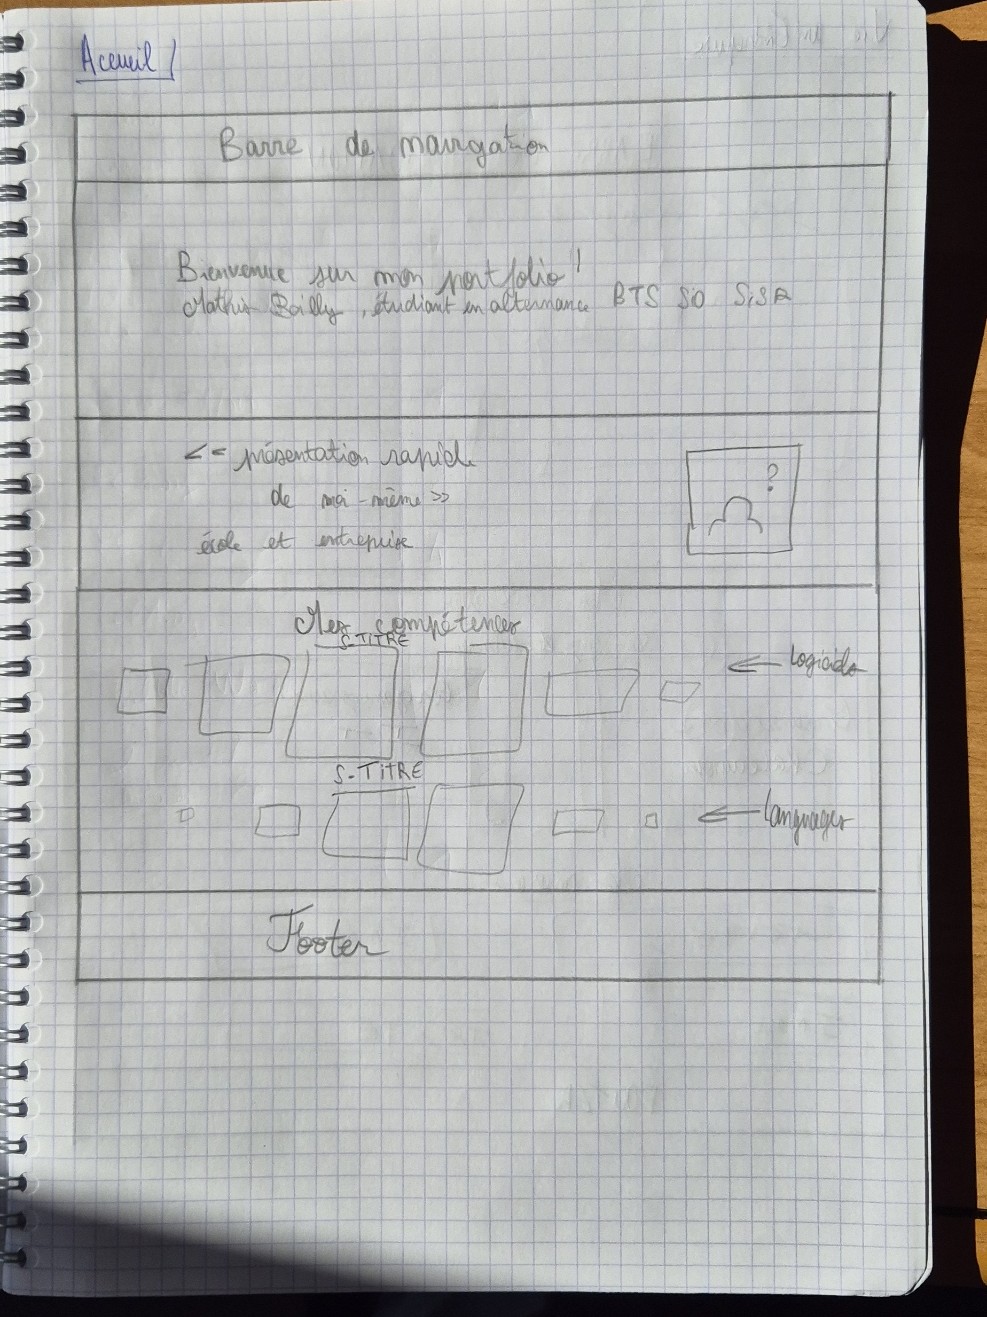 Accueil
Barre de navigation
Bienvenue sur mon portfolio !
étudiant en alternance BTS SIO SISR
<< présentation rapide
de moi-même >>
école et entreprise
?
Mes compétences
S-TITRE
← Logiciels
S-TITRE
← Languages
Footer